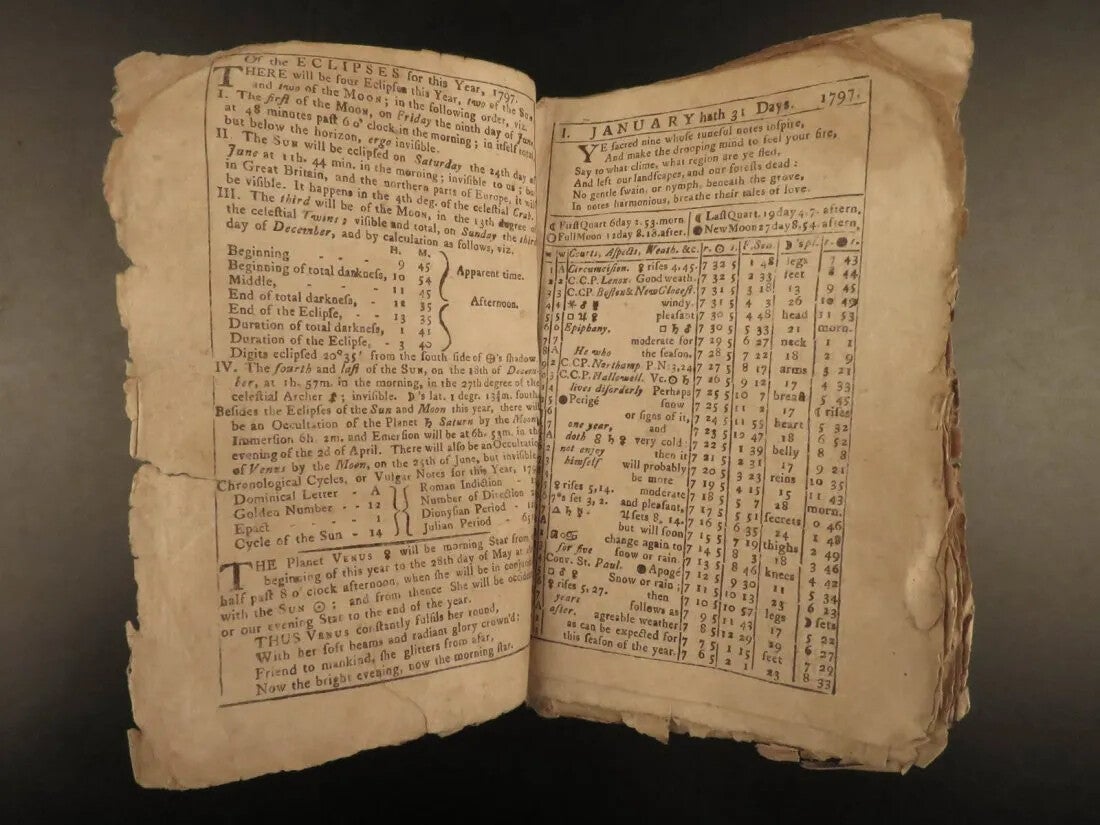 Of the ECLIPSES for this Year, 1797.
THERE will be four Eclipses this Year, two of the Sun,
and two of the MOON; in the following order, viz.
I. The first of the MOON, on Friday the ninth day of June,
at 48 minutes past 6 o'clock in the morning; in itself total,
but below the horizon, ergo invisible.
II. The SUN will be eclipsed on Saturday the 24th day of
June at 11h. 44 min. in the morning; invisible to us; but
in Great Britain, and the northern parts of Europe, it will
be visible. It happens in the 4th deg. of the celestial Crab.
III. The third will be of the MOON, in the 13th degree of
the celestial Twins; visible and total, on Sunday the third
day of December, and by calculation as follows, viz.
H. M.
Beginning - - 9 45
Beginning of total darkness, 10 54
Middle, - - - 11 45
End of total darkness, - - 12 35
End of the Eclipse, - - 13 35
Duration of total darkness, 1 41
Duration of the Eclipse, - 3 40
Apparent time.
Afternoon.
Digits eclipsed 20°35′ from the south side of ⊕'s shadow.
IV. The fourth and last of the SUN, on the 18th of Decem-
ber, at 1h. 57m. in the morning, in the 27th degree of the
celestial Archer ♐; invisible. ☽'s lat. 1 degr. 13½m. south.
Besides the Eclipses of the Sun and Moon this year, there will
be an Occultation of the Planet ♄ Saturn by the Moon;
Immersion 6h. 2m. and Emersion will be at 6h. 53m. in the
evening of the 2d of April. There will also be an Occultation
of Venus by the Moon, on the 25th of June, but invisible
Chronological Cycles, or Vulgar Notes for this Year, 179
Dominical Letter - A
Golden Number - - 12
Epact - - - 1
Cycle of the Sun - 14
Roman Indiction -
Number of Direction
Dionysian Period -
Julian Period - 65
THE Planet VENUS ♀ will be morning Star from
beginning of this year to the 28th day of May at
half past 8 o'clock afternoon, when she will be in conjunc
with the SUN ☉; and from thence She will be occiden
or our evening Star to the end of the year.
THUS VENUS constantly fulfils her round,
With her soft beams and radiant glory crown'd:
Friend to mankind, she glitters from afar,
Now the bright evening, now the morning star.
I. JANUARY hath 31 Days. 1797.
YE sacred nine whose tuneful notes inspire,
And make the drooping mind to feel your fire,
Say to what clime, what region are ye fled,
And left our landscapes, and our forests dead:
No gentle swain, or nymph, beneath the grove,
In notes harmonious, breathe their tales of love.
☾ First Quart 6day 1. 53. morn. ☾ Last Quart. 19day 4. 7. aftern.
○ Full Moon 12day 8. 18. after. ● New Moon 27day 8. 54. aftern.
Courts, Aspects, Weath. &c. r. ☉ s. F. Sea. ☽'s pl. r. ● s.
1 A Circumcision. ♀ rises 4.45. 7 32 5 1 48 legs 7 43
2 2 C.C.P. Lenox. Good weath. 7 32 5 2 33 feet 8 44
3 3 C.C.P. Boston & New Glocest. 7 31 5 3 18 13 9 45
4 4 ✶ ♂ ☿ windy. 7 31 5 4 3 26 10 49
5 5 □ ♃ ♀ pleasant 7 30 5 4 48 head 11 53
6 6 Epiphany. □ ♄ ♂ 7 30 5 5 33 21 morn.
7 7 moderate for 7 29 5 6 27 neck 1 1
8 A He who the season. 7 28 5 7 22 18 2 9
9 2 C.C.P. Northamp P. N: 3,24 7 27 5 8 17 arms 3 21
C.C.P. Hallowell. Vc. ☉ ♄ 7 26 5 9 12 17 4 33
lives disorderly Perhaps 7 25 5 10 7 breast 5 45
● Perigé snow 7 25 5 11 2 17 ☾ rises
or signs of it, 7 24 5 11 55 heart 5 32
one year, and 7 23 5 12 47 18 6 52
doth ♀ ♄ ♀ very cold: 7 22 5 1 39 belly 8 8
not enjoy then it 7 21 5 2 31 17 9 21
himself will probably 7 20 5 3 23 reins 10 35
be more 7 19 5 4 15 15 11 43
♀ rises 5,14. moderate 7 18 5 5 7 28 morn.
7*s set 3, 2. and pleasant, 7 17 5 5 51 secrets 0 46
△ ♄ ♀. ♃ sets 8. 14. 7 16 5 6 35 24 1 48
but will soon 7 15 5 7 19 thighs 2 49
change again to 7 14 5 8 3 18 3 46
for five snow or rain. 7 13 5 8 46 knees 4 42
Conv. St. Paul. ● Apogé 7 12 5 9 30 11 5 34
□ ♂ ♀ Snow or rain; 7 11 5 10 13 23 6 23
♀ rises 5,27. then 7 10 5 10 57 legs ☽ sets
years follows as 7 9 5 11 43 17 5 22
after. agreeable weather 7 8 5 12 29 29 6 27
as can be expected for 7 7 5 1 15 feet 7 29
this season of the year. 7 6 5 2 1 23 8 33